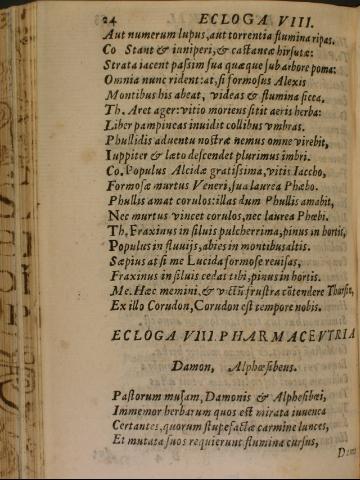 24 ECLOGA VIII.
Aut numerum lupus, aut torrentia flumina ripas.
Co Stant & iuniperi, & castaneæ hirsutæ:
Strata iacent passim sua quæque sub arbore poma:
Omnia nunc rident: at, si formosus Alexis
Montibus his abeat, videas & flumina sicca.
Th. Aret ager: vitio moriens sitit aeris herba:
Liber pampineas inuidit collibus vmbras.
Phyllidis aduentu nostræ nemus omne virebit,
Iuppiter & læto descendet plurimus imbri.
Co. Populus Alcidæ gratissima, vitis Iaccho,
Formosæ murtus Veneri, sua laurea Phœbo.
Phyllis amat corulos: illas dum Phyllis amabit,
Nec murtus vincet corulos, nec laurea Phœbi.
Th. Fraxinus in siluis pulcherrima, pinus in hortis,
Populus in fluuijs, abies in montibus altis.
Sæpius at si me Lucida formose reuisas,
Fraxinus in siluis cedat tibi, pinus in hortis.
Me. Hæc memini, & victũ frustra cõtendere Thursin,
Ex illo Corudon, Corudon est tempore nobis.
ECLOGA VIII. PHARMACEVTRIA
Damon, Alphœsibeus.
Pastorum musam, Damonis & Alphesibœi,
Immemor herbarum quos est mirata iuuenca
Certantes, quorum stupefactæ carmine lunces,
Et mutata suos requierunt flumina cursus,